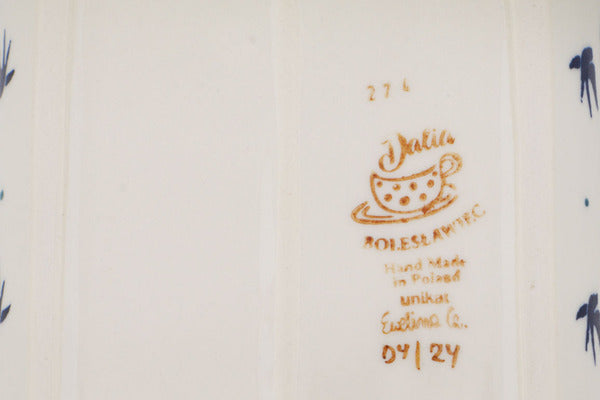 274
Dalia
BOLESŁAWIEC
Hand Made
in Poland
unikat
Ewelina Ca.
04/24